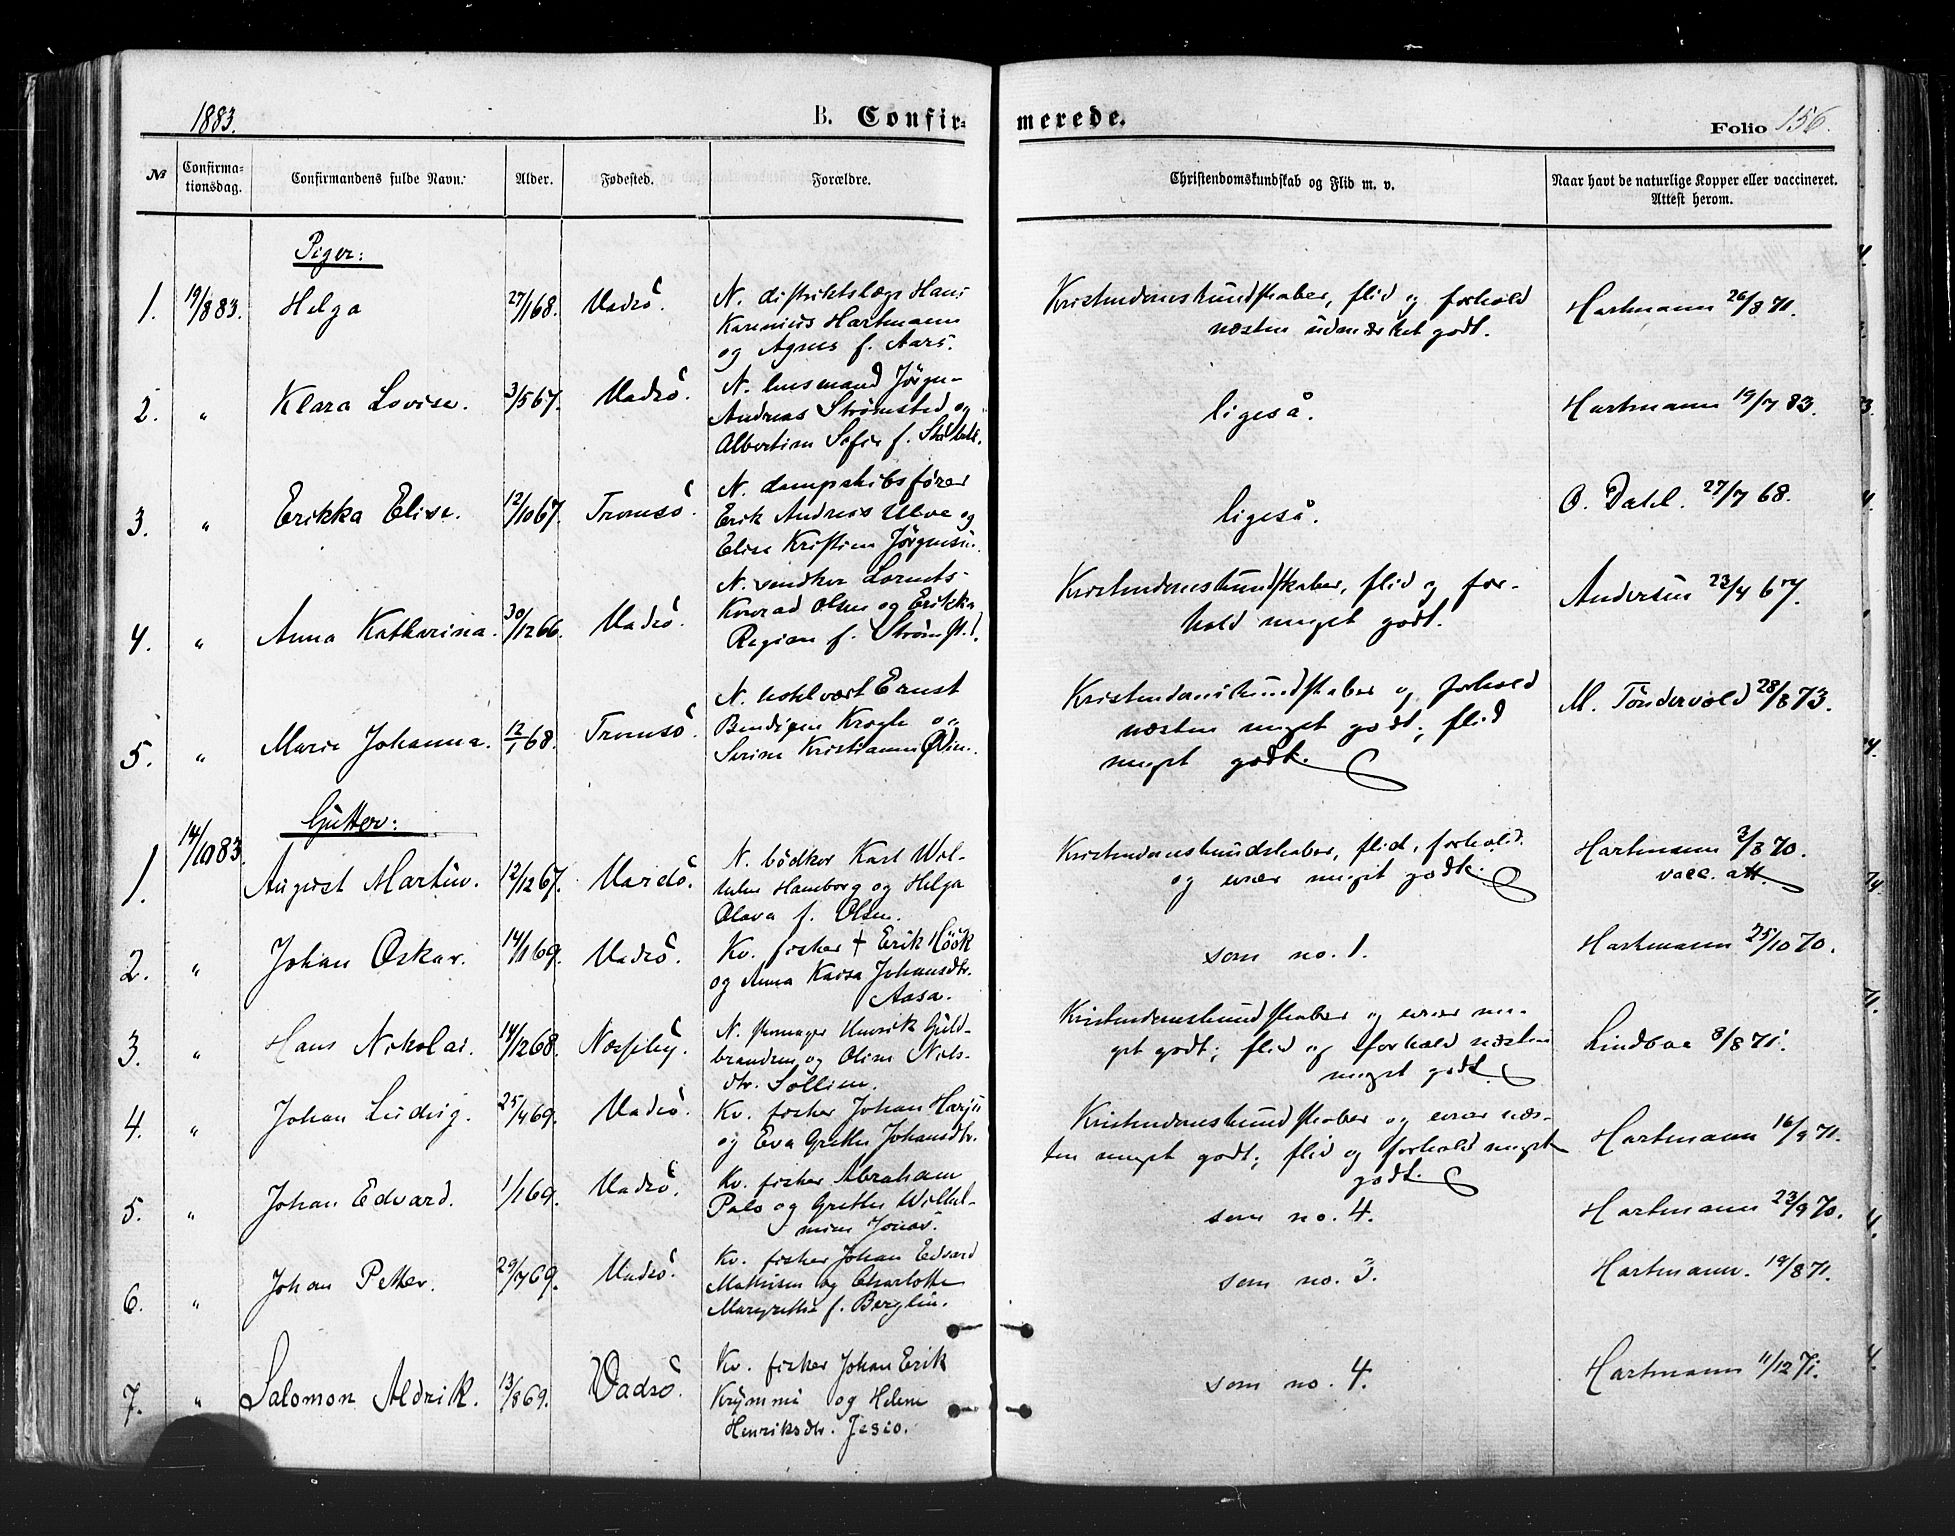 1883.
B. Confir-
merede.
Folio 156.
№
Confirma-
tionsdag.
Confirmandens fulde Navn.
Alder.
Fødested.
Forældre.
Christendomskundskab og Flid m. v.
Naar havt de naturlige Kopper eller vaccineret.
Attest herom.
Piger:
1. 19/8 83. Helga 27/1 68. Vadsö.
N. distriktslæge Hans
Hartmann
og Agnes f. Aars.
Kristendomskundskaber, flid og forhold
næsten udmærket godt.
Hartmann 26/8 71.
2. " Klara Lovise. 3/5 67. Vadsö.
N. husmand Jörgen
Andreas Strömsted og
Albertine Sofie f.
ligeså.
Hartmann 19/7 83.
3. " Erikka Elise. 12/10 67. Tromsö.
N. dampskibsförer
Erik Andreas Ulve og
Elise Kristine Jörgensen.
ligeså.
O. Dahl. 27/7 68.
4. " Anna Katharina. 30/12 66. Vadsö.
N. snedker Lorents
Konrad Olsen og Erikka
Regine f. Strömst.
Kristendomskundskaber, flid og for-
hold meget godt.
Andersen 23/4 67.
5. " Marie Johanna. 12/1 68. Tromsö.
N. hotelvært Ernst
Bendigen Krogh og
Serine Kristianne
Kristendomskundskaber og forhold
næsten meget godt; flid
meget godt.
M. Töndervold 28/8 73.
Gutter:
1. 14/10 83. August Martin. 12/12 67. Vardö.
N. bödker Karl Wil-
helm Hamborg og Helga
Olava f. Olsen.
Kristendomskundskaber, flid, forhold
og evner meget godt.
Hartmann 3/8 70.
vacc. att.
2. " Johan Oskar. 14/1 69. Vadsö.
Kv. fisker † Erik Höök
og Anna Kaisa Johansdtr.
Aasa.
som no. 1.
Hartmann 25/10 70.
3. " Hans Nikolai. 14/12 68. Næsseby.
N. Henrik Guld-
brandsen og Oline Nils-
dtr. Sollien.
Kristendomskundskaber og evner me-
get godt; flid og forhold næsten
meget godt.
Lindboe 8/8 71.
4. " Johan Ludvig. 25/4 69. Vadsö.
Kv. fisker Johan Harju
og Eva Grethe Johansdtr.
Kristendomskundskaber og evner næs-
ten meget godt; flid og forhold meget
godt.
Hartmann 16/9 71.
5. " Johan Edvard. 1/1 69. Vadsö.
Kv. fisker Abraham
Palo og Grethe Wilhel-
mine Jonas.
som no. 4.
Hartmann 23/9 70.
6. " Johan Petter. 29/7 69. Vadsö.
Kv. fisker Johan Edvard
Mathisen og Charlotte
Margrethe f. Berglin.
som no. 3.
Hartmann. 19/8 71.
7. " Salomon Aldrik. 13/8 69. Vadsö.
Kv. fisker Johan Erik
Krymmi og Helene
Henriksdtr. Jesio.
som no. 4.
Hartmann 11/12 71.